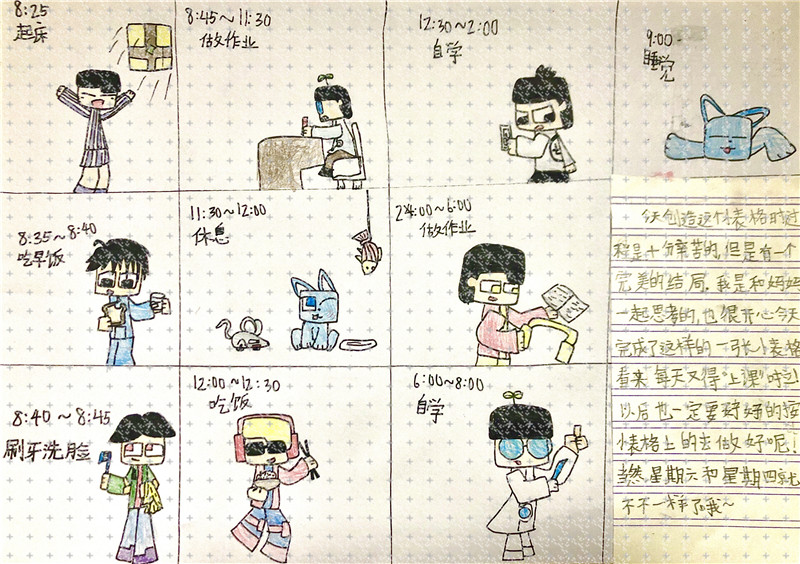 8:25
起床
8:35~8:40
吃早饭
8:40~8:45
刷牙洗脸
8:45~11:30
做作业
11:30~12:00
休息
12:00~12:30
吃饭
12:30~2:00
自学
24:00~6:00
做作业
6:00~8:00
自学
9:00
睡觉
今天创造这个表格的过
程是十分辛苦的,但是有一个
完美的结局,我是和妈妈
一起思考的,也很开心今天
完成了这样的一张小表格
看来每天又得"上课"时
以后也一定要好好的按
表格上的去做好呢!
当然,星期六和星期四就
不不一样了哦~